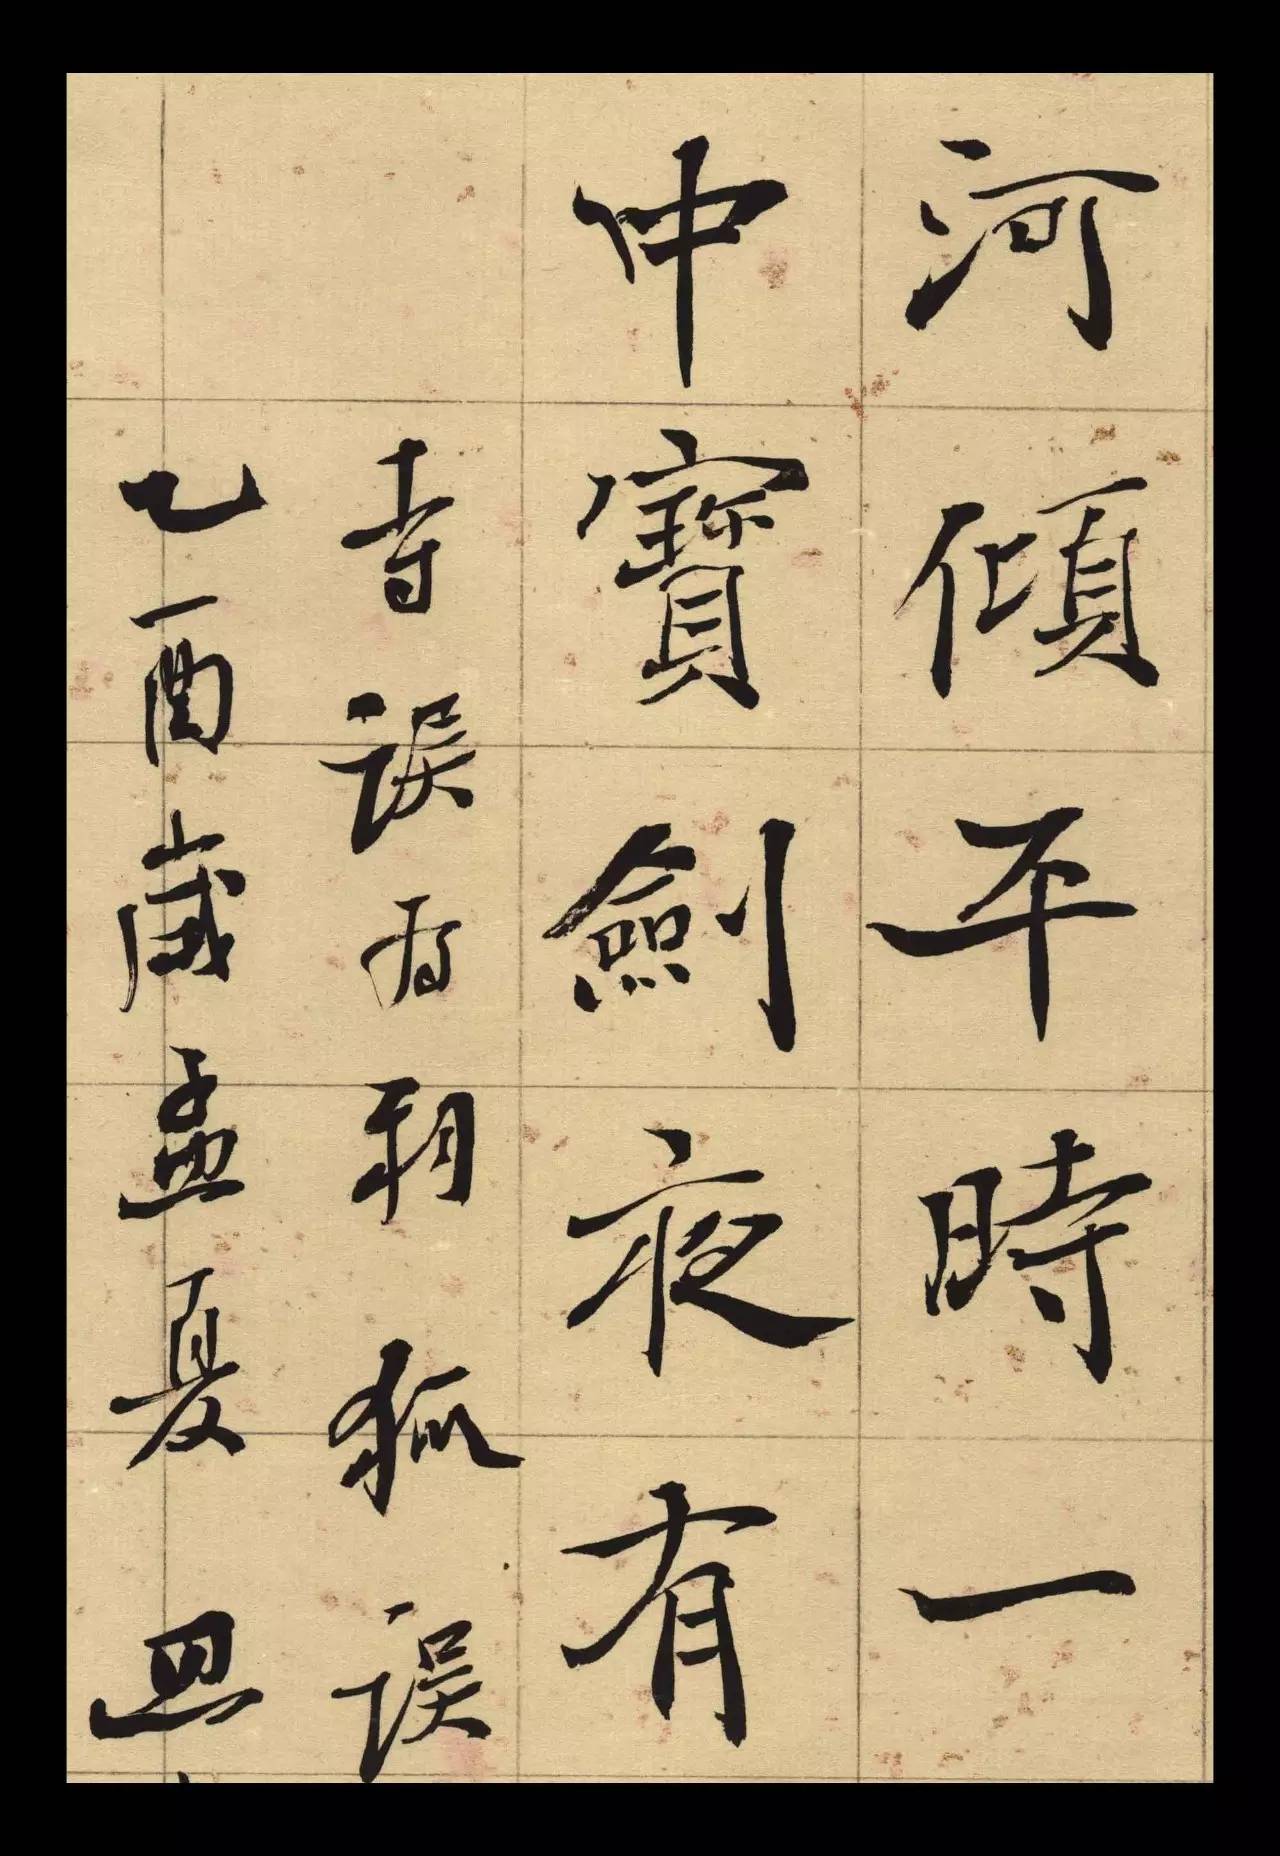 河傾平時一
中寶劍夜有
寺誤狐誤
乙酉歲孟夏